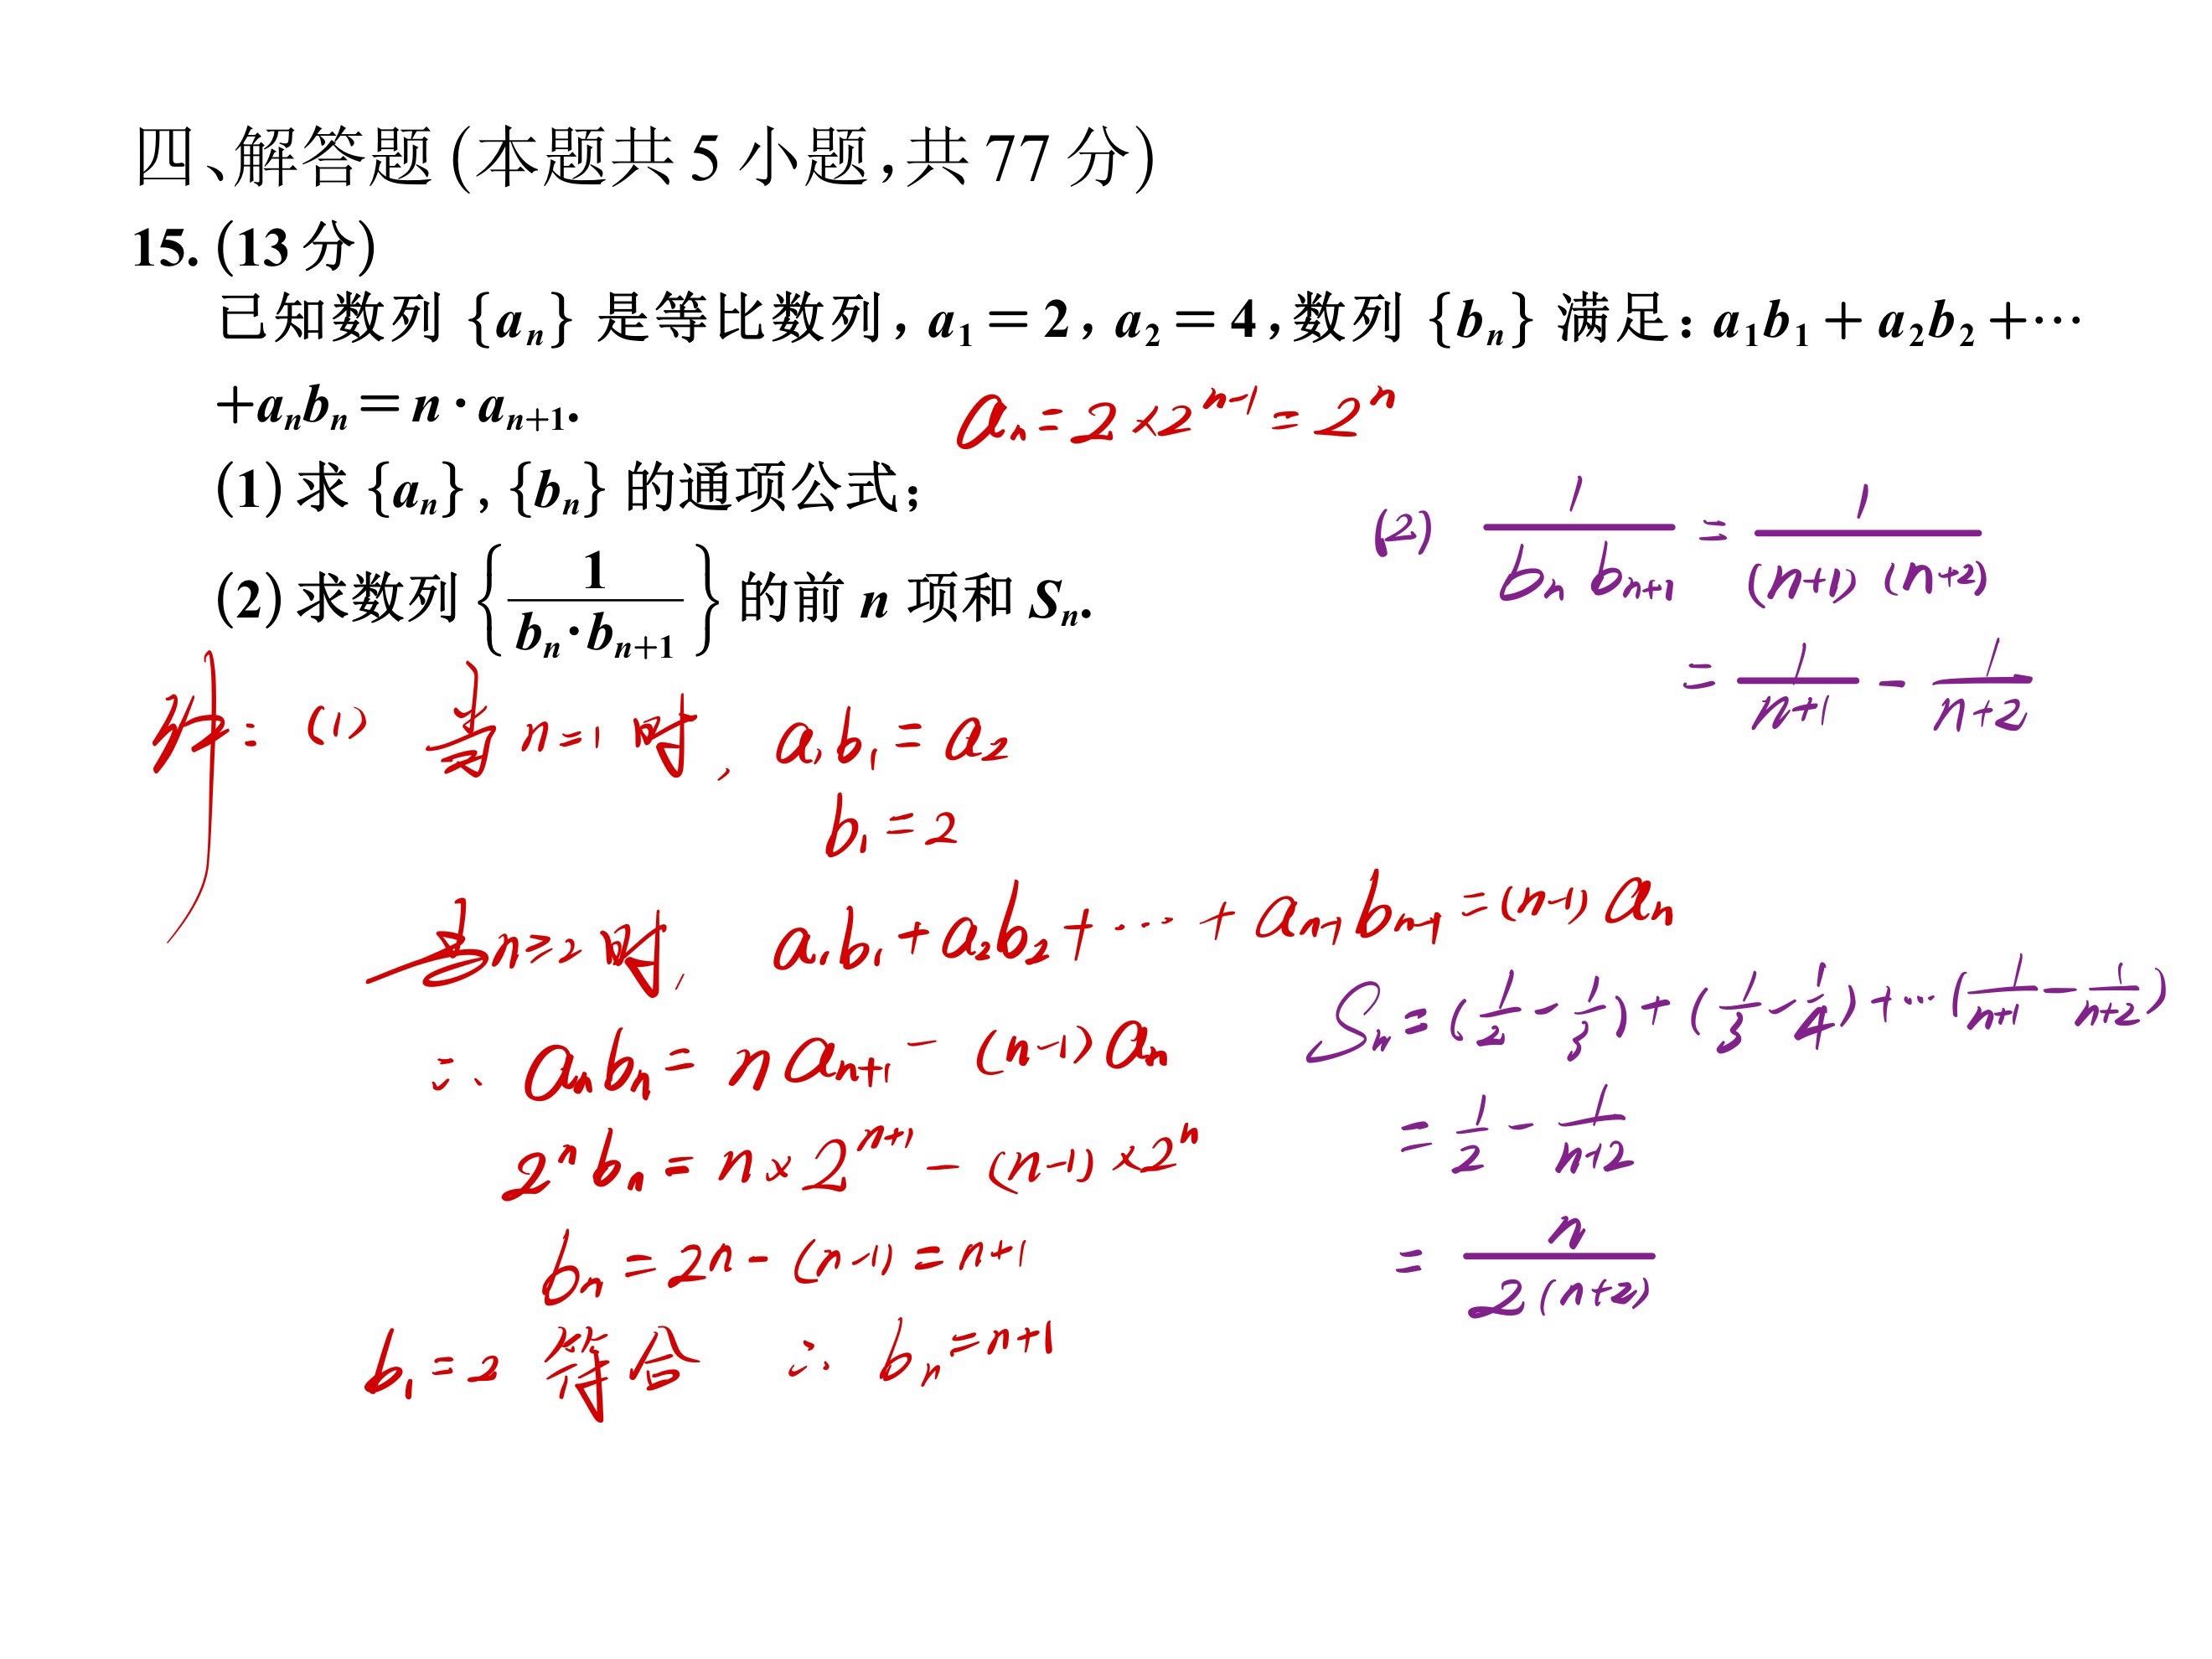 四、解答题(本题共 5 小题,共 77 分)
15. (13 分)
已知数列 {aₙ} 是等比数列, a₁=2, a₂=4, 数列 {bₙ} 满足: a₁b₁+a₂b₂+⋯
+aₙbₙ=n·aₙ₊₁.
aₙ=2×2ⁿ⁻¹=2ⁿ
(1) 求 {aₙ}, {bₙ} 的通项公式;
(2) 求数列 {1/(bₙ·bₙ₊₁)} 的前 n 项和 Sₙ.
解: (1) 当 n=1 时, a₁b₁=a₂
b₁=2
当n≥2时, a₁b₁+a₂b₂+⋯+aₙ₋₁bₙ₋₁=(n-1)aₙ
∴ aₙbₙ=naₙ₊₁-(n-1)aₙ
2ⁿbₙ=n×2ⁿ⁺¹-(n-1)×2ⁿ
bₙ=2n-(n-1)=n+1
b₁=2 符合 ∴ bₙ=n+1
(2) 1/(bₙbₙ₊₁) = 1/((n+1)(n+2))
= 1/(n+1) - 1/(n+2)
Sₙ=(1/2-1/3)+(1/3-1/4)+⋯(1/(n+1)-1/(n+2))
= 1/2 - 1/(n+2)
= n/(2(n+2))